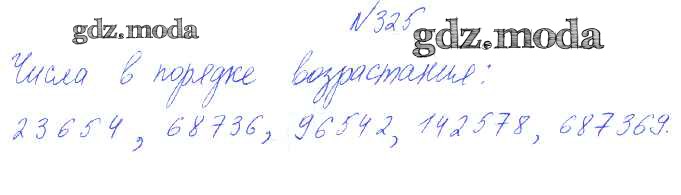 №325
gdz.moda
gdz.moda
Числа в порядке возрастания:
23654, 68736, 96542, 142578, 687369.